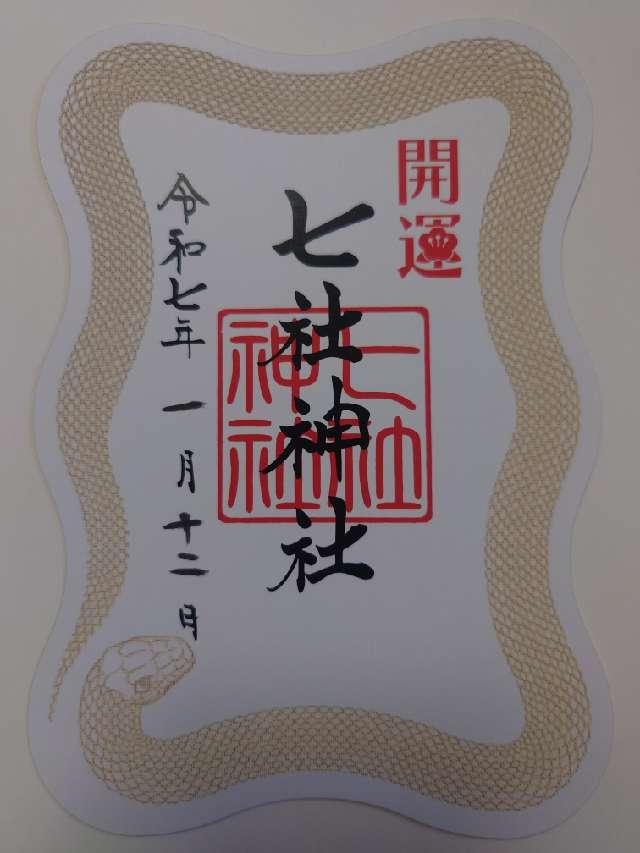 開運
七社神社
七社神社
令和七年 一月十二日